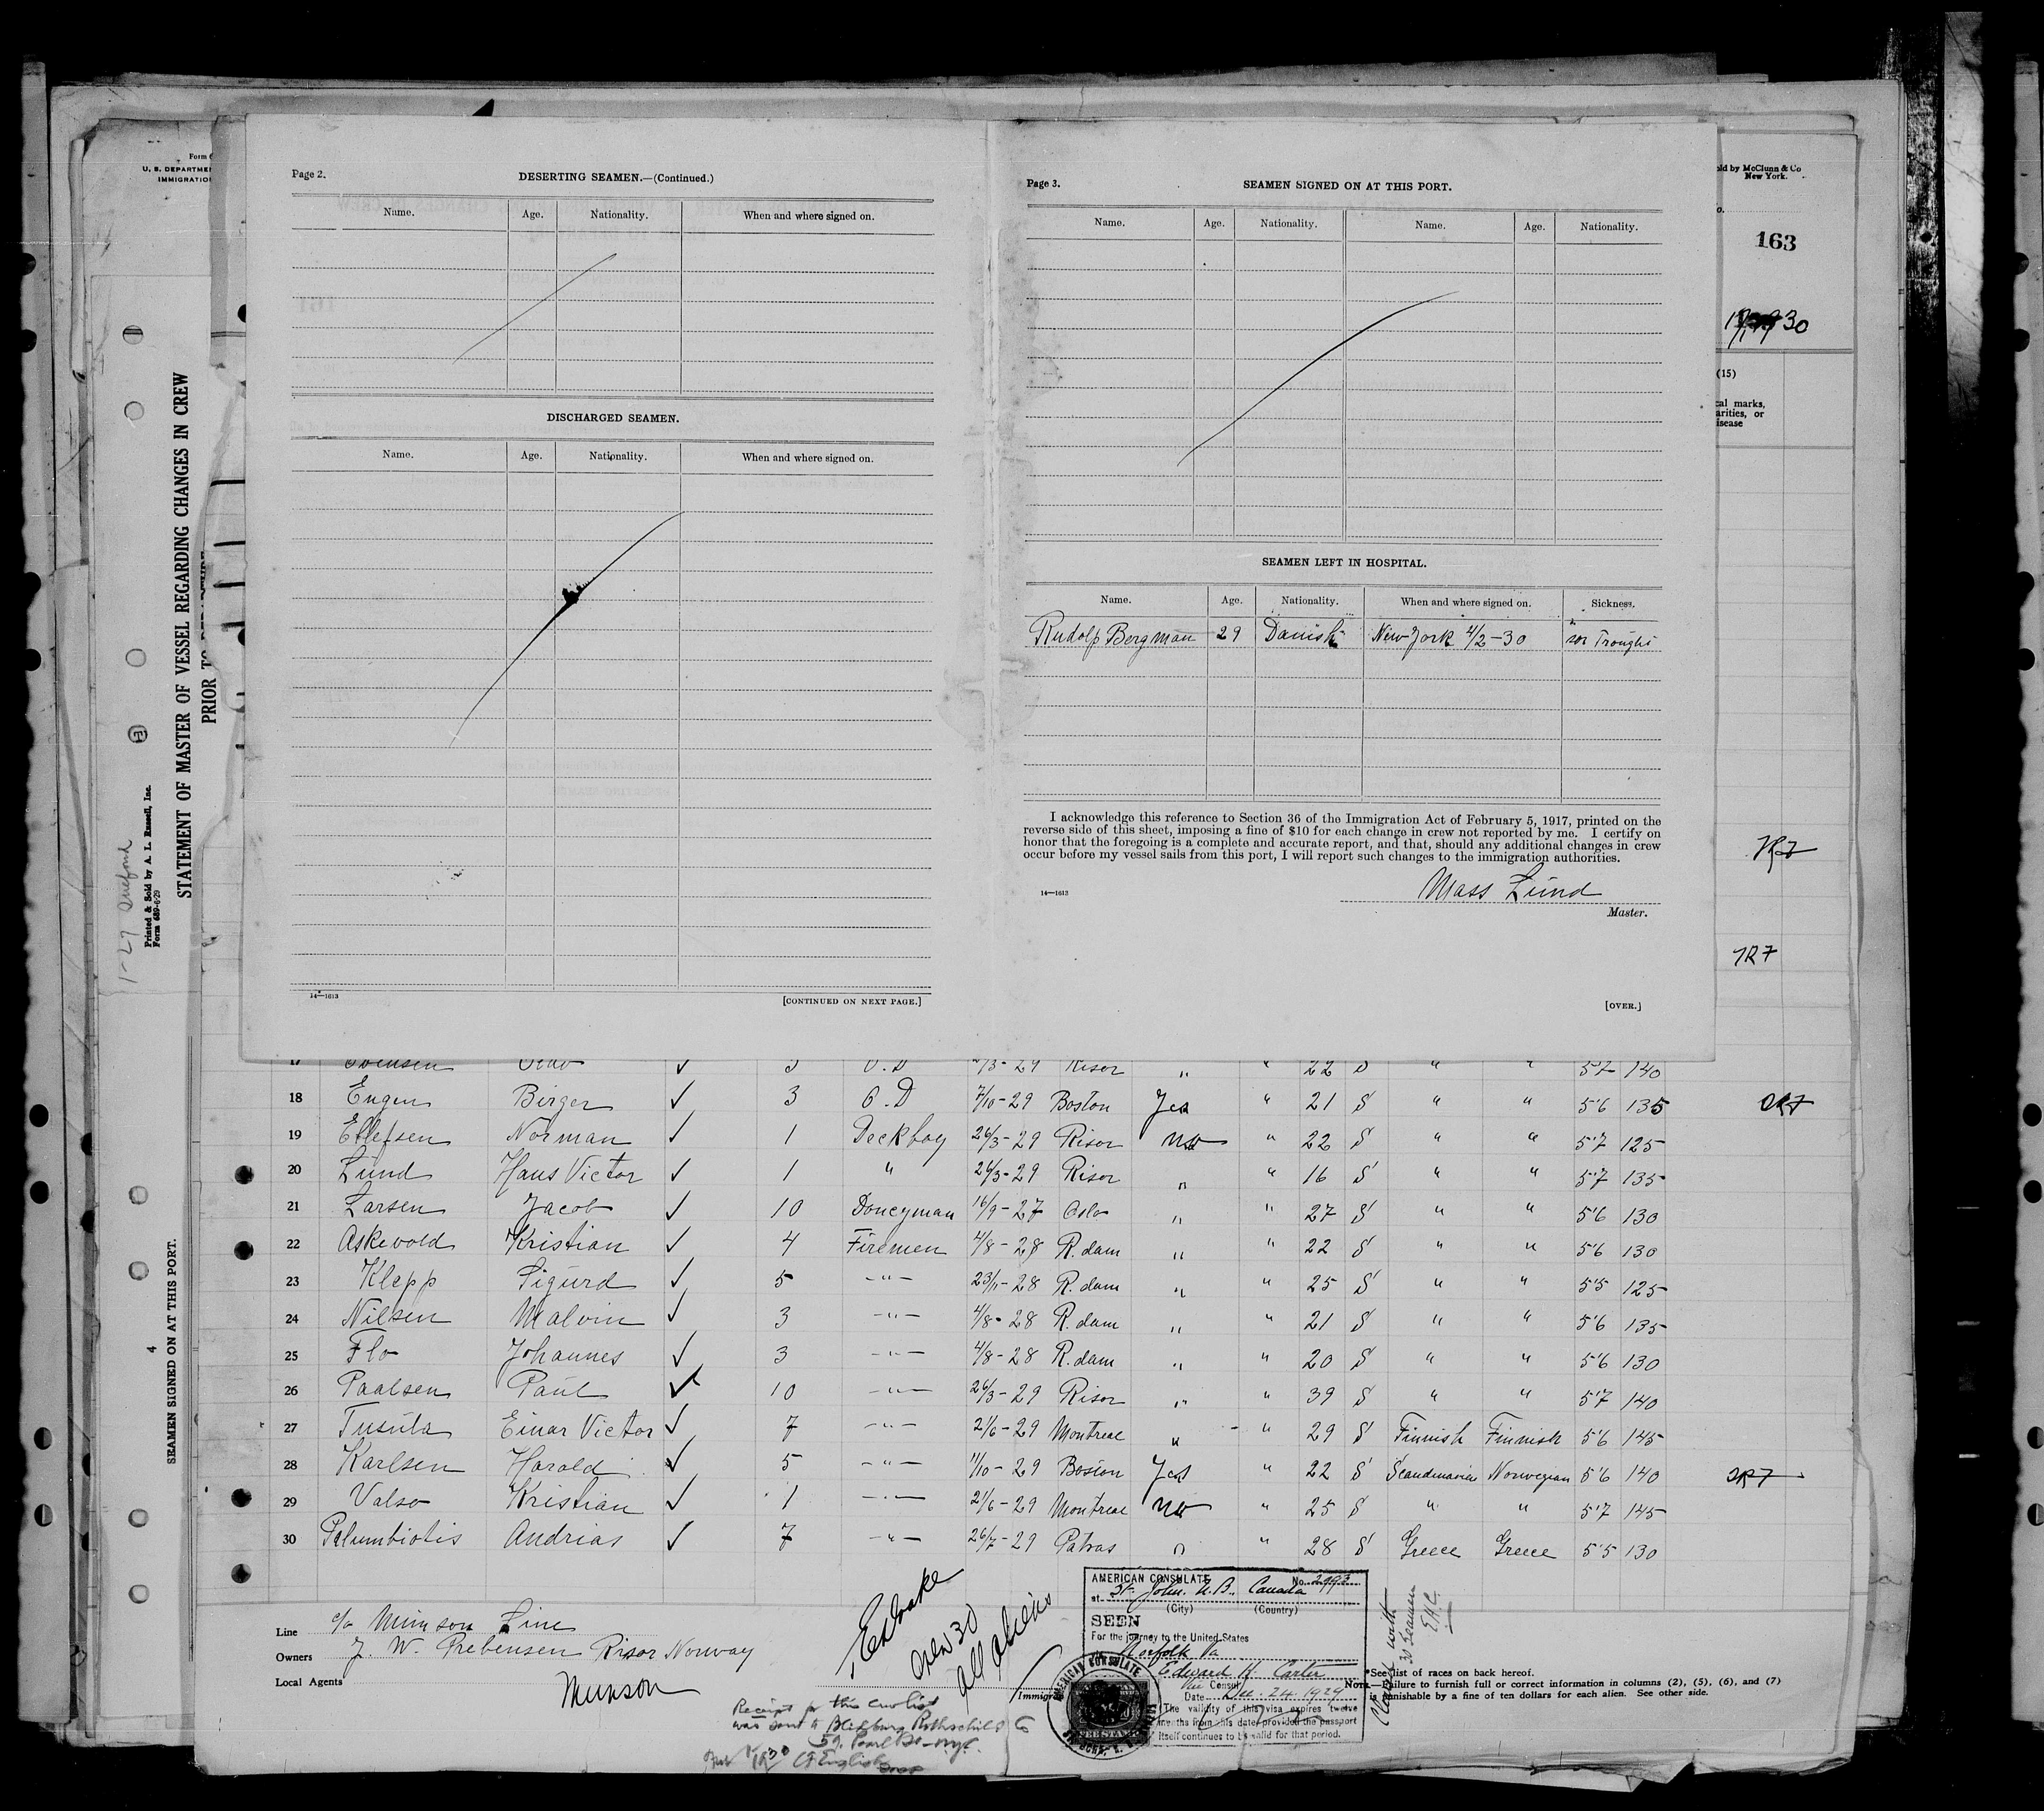 Page 2.
DESERTING SEAMEN.—(Continued.)
Name. Age. Nationality. When and where signed on.
DISCHARGED SEAMEN.
Name. Age. Nationality. When and where signed on.
14—1613
[CONTINUED ON NEXT PAGE.]
Page 3.
SEAMEN SIGNED ON AT THIS PORT.
Name. Age. Nationality. Name. Age. Nationality.
SEAMEN LEFT IN HOSPITAL.
Name. Age. Nationality. When and where signed on. Sickness.
Rudolf Bergman 29 Danish New York 4/2-30
I acknowledge this reference to Section 36 of the Immigration Act of February 5, 1917, printed on the
reverse side of this sheet, imposing a fine of $10 for each change in crew not reported by me. I certify on
honor that the foregoing is a complete and accurate report, and that, should any additional changes in crew
occur before my vessel sails from this port, I will report such changes to the immigration authorities.
14—1613
Mass Lund
Master.
[OVER.]
Form
U. S. DEPARTMEN
IMMIGRATION
STATEMENT OF MASTER OF VESSEL REGARDING CHANGES IN CREW
PRIOR TO
Printed & Sold by A. L. Russell, Inc.
Form 689-6-29
4
SEAMEN SIGNED ON AT THIS PORT.
old by McClunn & Co
New York.
o.
163
(15)
cal marks,
arities, or
isease
17 Svensen Olav ✓ 3 O.D 2/3-29 Risor " " 22 S " " 5'7 140
18 Engen Birger ✓ 3 O.D 7/10-29 Boston Yes " 21 S " " 5'6 135
19 Ellefsen Norman ✓ 1 Deckboy 26/3-29 Risor no " 22 S " " 5'7 125
20 Lund Hans Victor ✓ 1 " 26/3-29 Risor " " 16 S " " 5'7 135
21 Larsen Jacob ✓ 10 Donceyman 16/9-27 Oslo " " 27 S " " 5'6 130
22 Askevold Kristian ✓ 4 Firemen 4/8-28 R.dam " " 22 S " " 5'6 130
23 Klepp Sigurd ✓ 5 -"- 23/11-28 R.dam " " 25 S " " 5'5 125
24 Nilsen Malvin ✓ 3 -"- 4/8-28 R.dam " " 21 S " " 5'6 135
25 Flo Johannes ✓ 3 -"- 4/8-28 R.dam " " 20 S " " 5'6 130
26 Paalsen Paul ✓ 10 -"- 26/3-29 Risor " " 39 S " " 5'7 140
27 Tusula Einar Victor ✓ 7 -"- 21/6-29 Montreal " " 29 S Finnish Finnish 5'6 145
28 Karlsen Harald ✓ 5 -"- 11/10-29 Boston Yes " 22 S Scandinavian Norwegian 5'6 140
29 Valso Kristian ✓ 1 -"- 21/6-29 Montreal no " 25 S " " 5'7 145
30 Palumbiotis Andrias ✓ 7 -"- 26/7-29 Patras " " 28 S Greece Greece 5'5 130
Line c/o Munson Line
Owners J. W. Prebensen Risor Norway
Local Agents Munson
all aliens
Immigra
Receipt for this crewlist
was sent to Rothschild Co
59 Pearl St - nyc.
AMERICAN CONSULATE No. 2993
at St. John. N.B. Canada
(City) (Country)
SEEN
For the journey to the United States
Norfolk Va
Edward K. Carter
Vice Consul
Date Dec. 24. 1929
The validity of this visa expires twelve
months from this date, provided the passport
itself continues to be valid for that period.
AMERICAN CONSULATE
*See list of races on back hereof.
NOTE.—Failure to furnish full or correct information in columns (2), (5), (6), and (7)
is punishable by a fine of ten dollars for each alien. See other side.